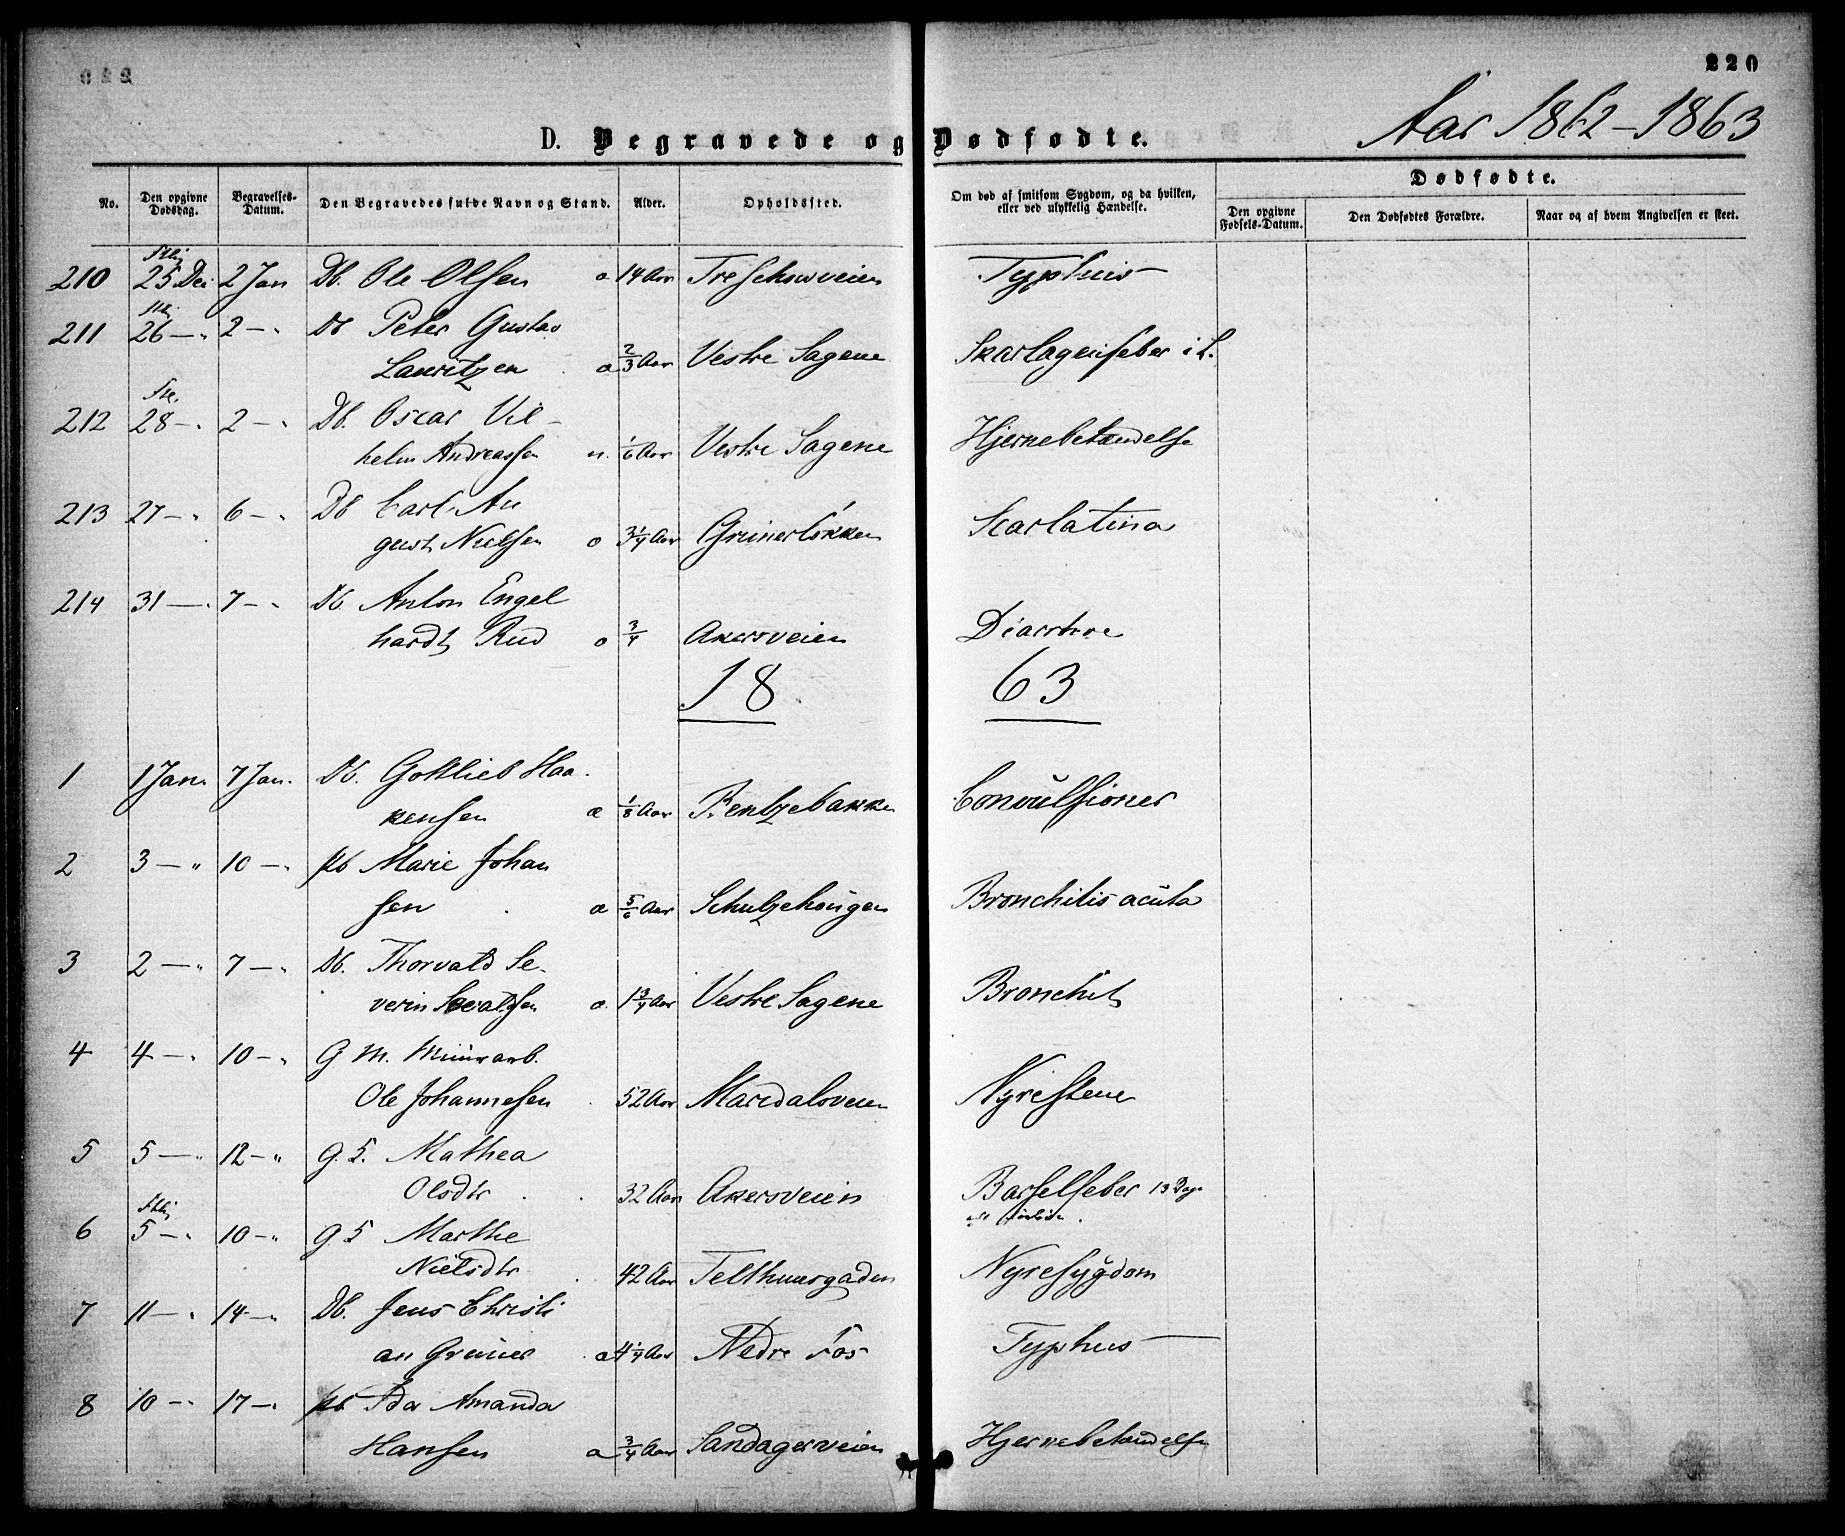 220
Aar 1862-1863
D. Begravede og Dødfødte.
No. Den opgivne Dødsdag. Begravelses-Datum. Den Begravedes fulde Navn og Stand. Alder. Opholdssted. Om død af smitsom Sygdom, og da hvilken, eller ved ulykkelig Hændelse. Dødfødte.
Den opgivne Fødsels-Datum. Den Dødfødtes Forældre. Naar og af hvem Angivelsen er skeet.
210 25 Dec 2 Jan Db. Ole Olsen a 14 Aar Treschowveien Typhus
211 26 — „ 2 — „ Db Peter Gustav
Lauritzen a 2/3 Aar Vestre Sagene Skarlagensfeber i L.
212 28 — „ 2 — „ Db. Oscar Vil-
helm Andreassen u. 1/6 Aar Vestre Sagene Hjernebetændelse
213 27 — „ 6 — „ Db Carl Au
gust Nielsen a 3 1/4 Aar Grünerløkken Scarlatina
214 31 — „ 7 — „ Db Anton Engel
hardt Rud a 3/4 Akersveien Diarrhoe
18 63
1 1 Jan. 7 Jan. Db. Gottlieb Haa-
kensen a 1/8 Aar Bentzebakken Convulsioner
2 3 — „ 10 — „ pb Marie Johan
sen a 5/6 Aar Schultzehougen Bronchitis acuta
3 2 — „ 7 — „ Db. Thorvald Se-
verin a. 1 3/4 Aar Vestre Sagene Bronchit
4 4 — „ 10 — „ G M. Muurarb.
Ole Johannesen 52 Aar Maridalsveien Nyresteene
5 5 — „ 12 — „ g. K. Mathea
Olsdtr 32 Aar Akersveien Barselfeber 13 Dage
6 5 — „ 10 — „ g K Marthe
Nielsdtr 42 Aar Telthuusgaden Nyresygdom
7 11 — „ 14 — „ Db. Jens Christi
an Grüner a 4 1/4 Aar Nedre Fos Typhus
8 10 — „ 17 — „ pb Ida Amanda
Hansen a 3/4 Aar Sandagerveien Hjernebetændelse